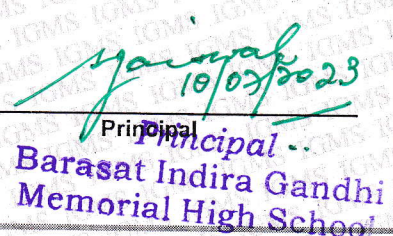 IGMS IGMS IGMS
Principal
Principal ..
Barasat Indira Gandhi
Memorial High School